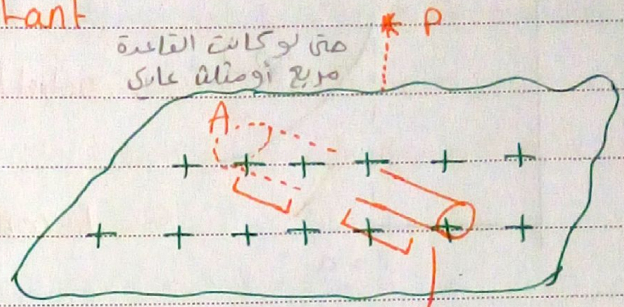 tant
P
حتى لو كانت القاعدة
مربع أو مثلث عادي
A